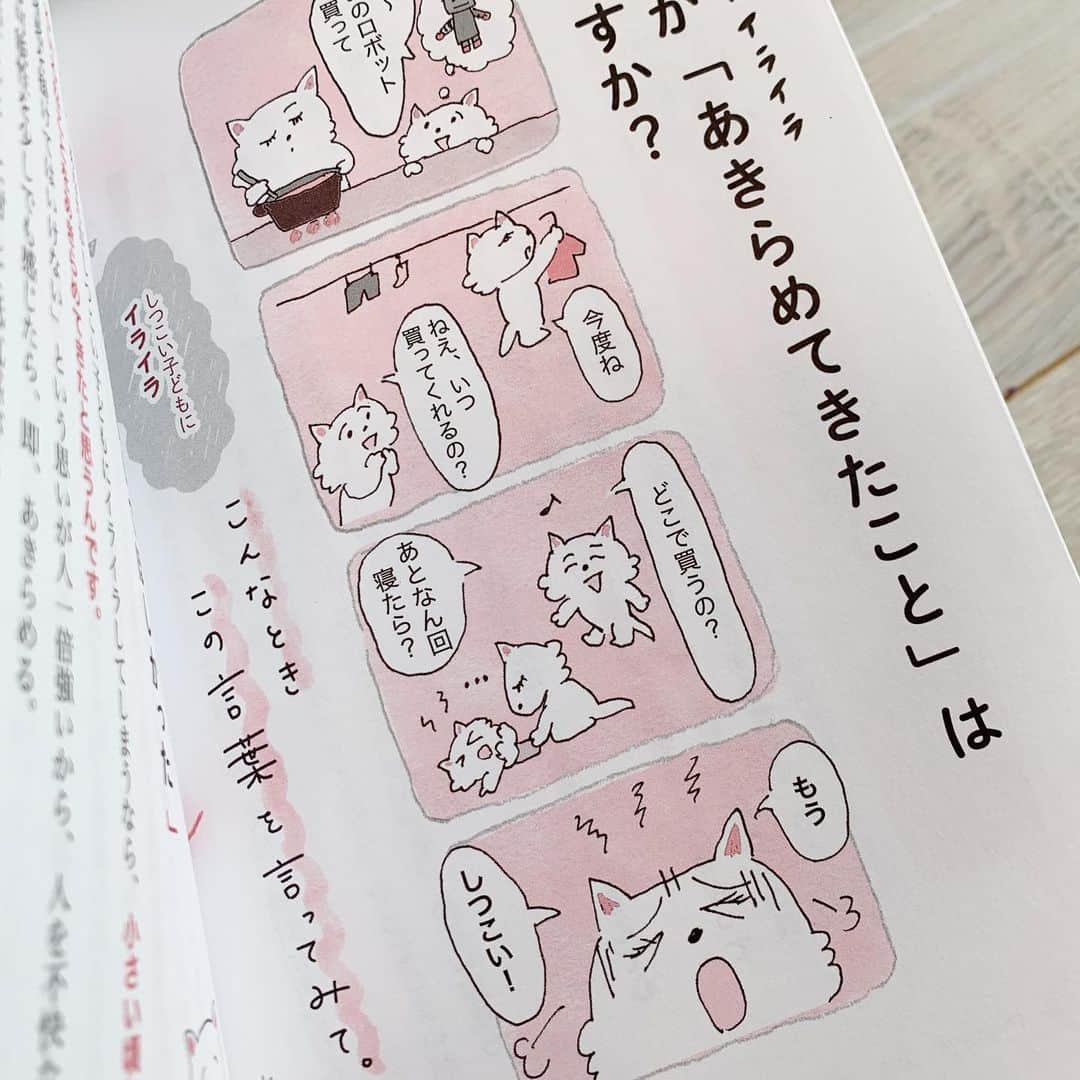 イライラ
が「あきらめてきたこと」は
すか？
のロボット
買って
今度ね
ねえ、いつ
買ってくれるの？
どこで買うの？
あとなん回
寝たら？
もう
しつこい！
しつこい子どもに
イライラ
こんなとき
この言葉を言ってみて。
った」
にイライラしてしまうなら、小さい頃
てきたと思うんです。
いけない」という思いが人一倍強いから、人を不快
たら、即、あきらめる。